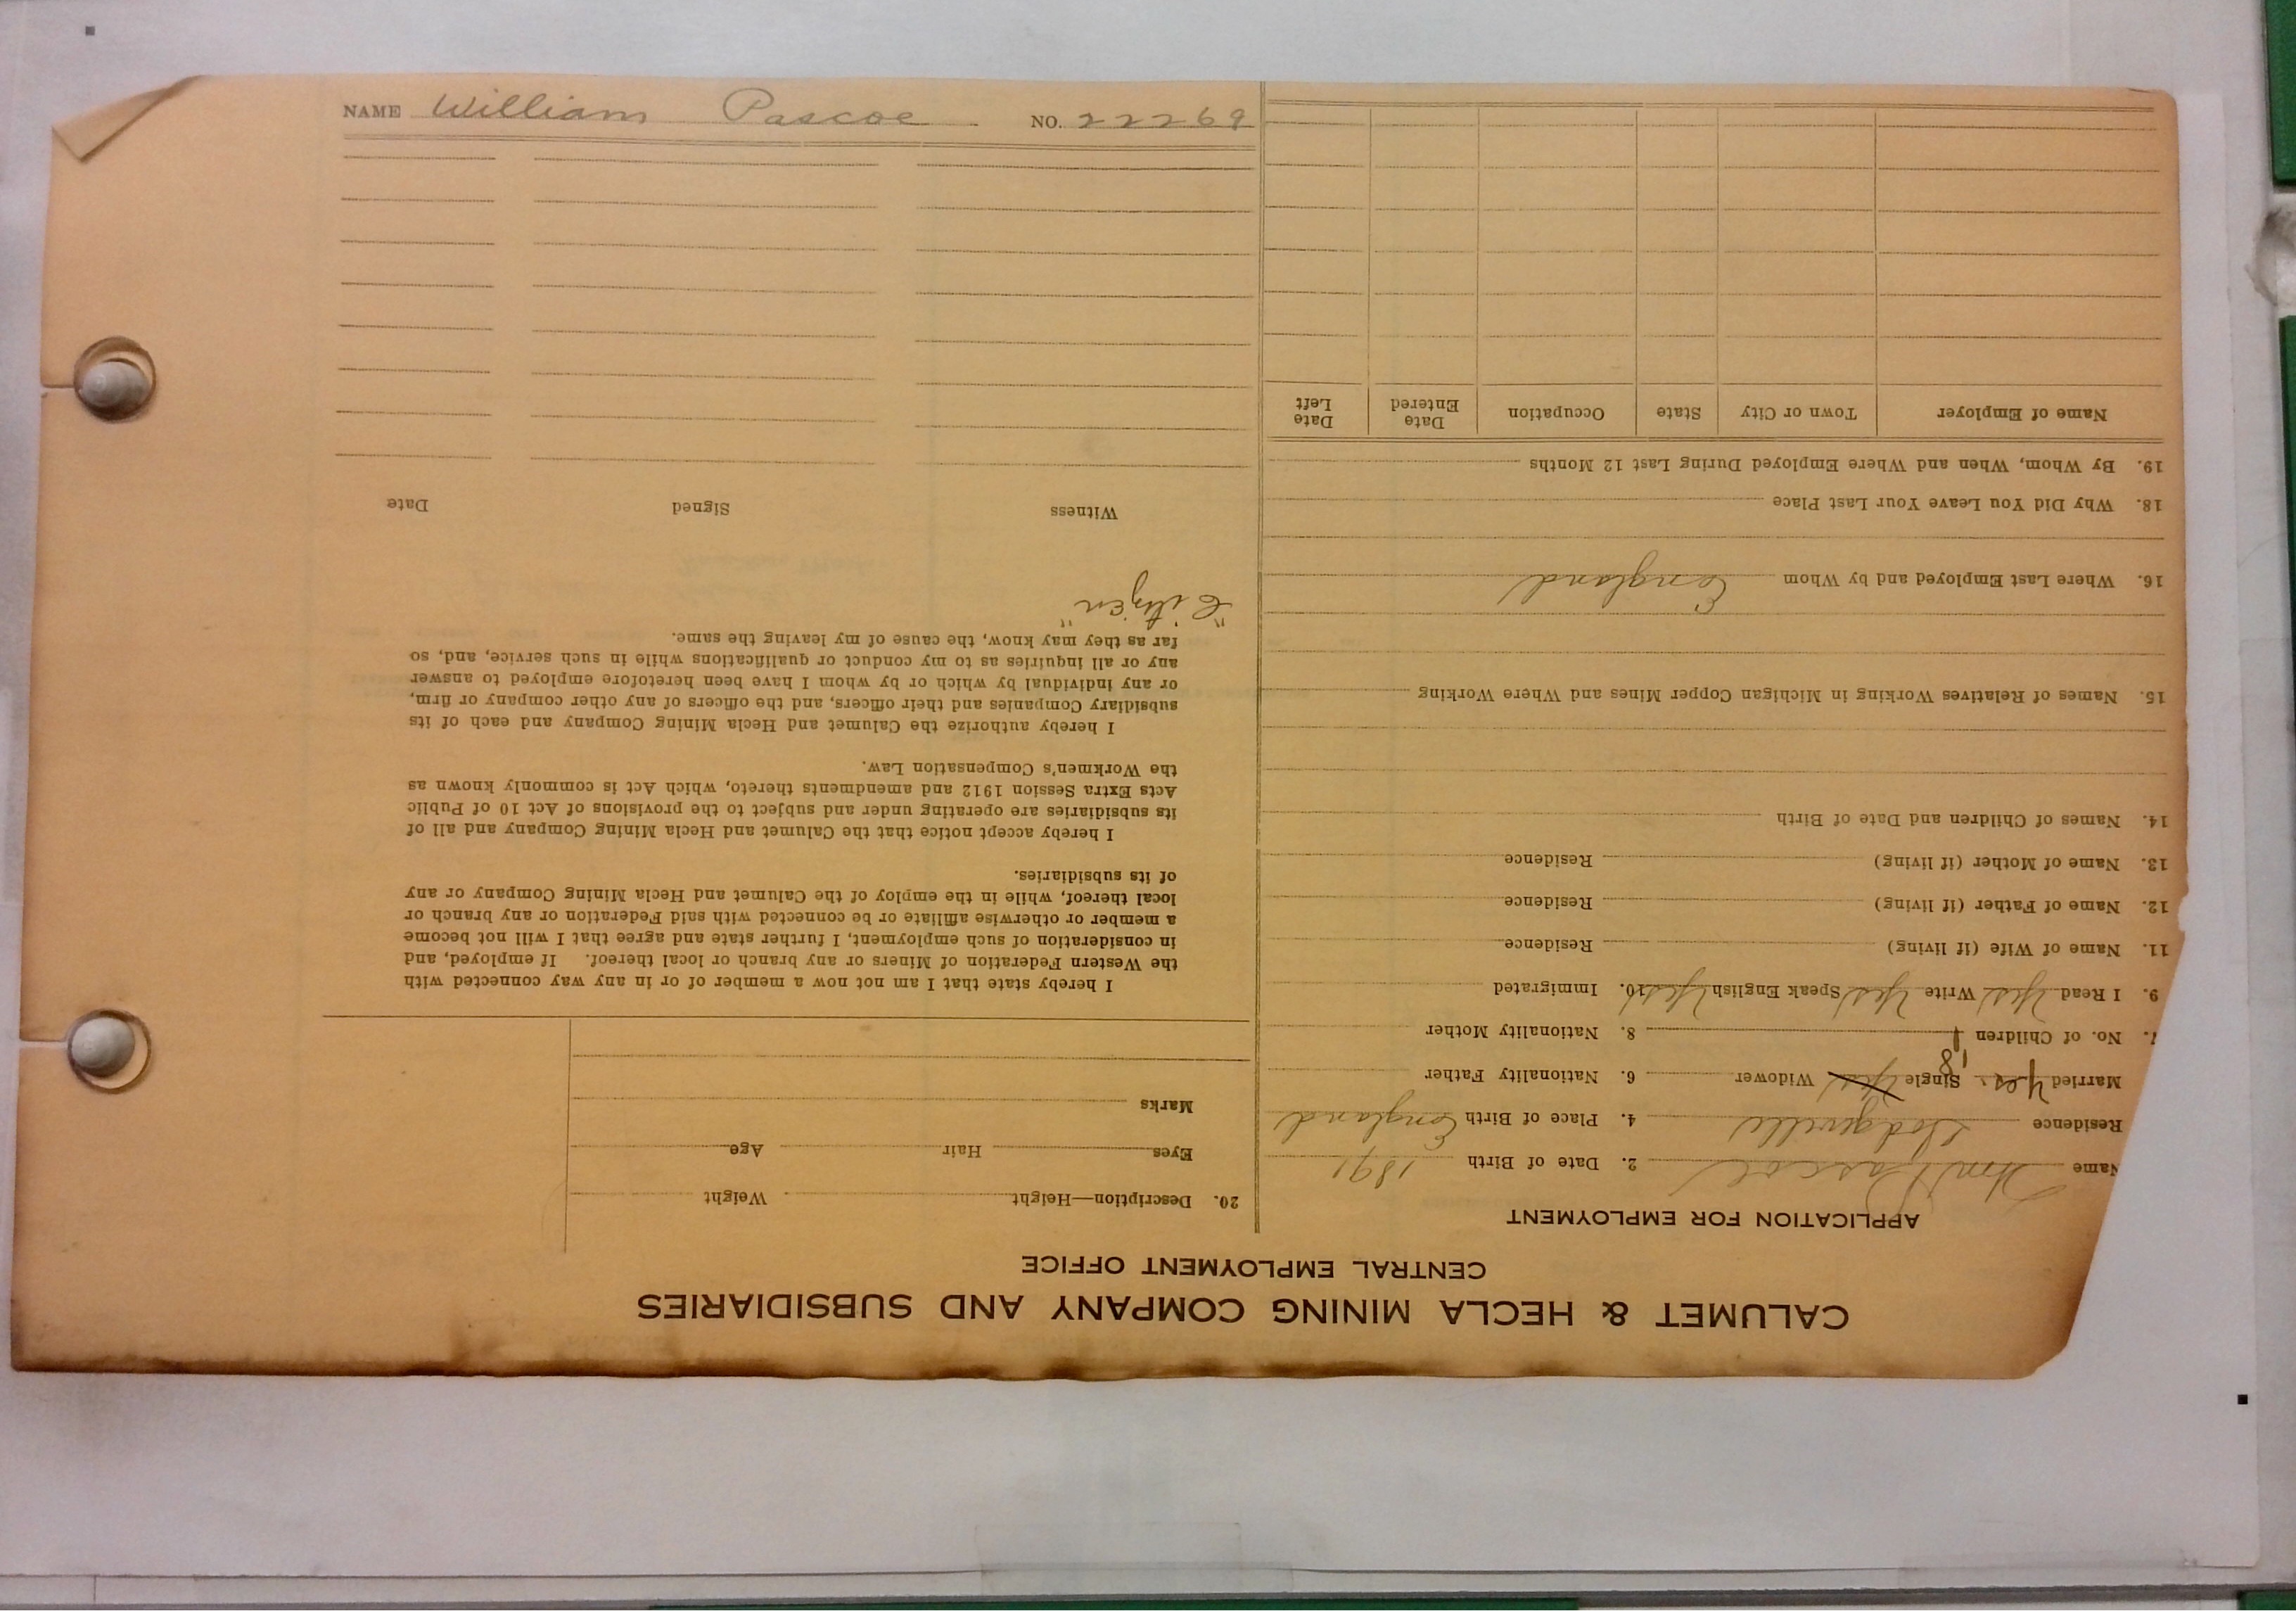 NAME William Pascoe NO. 22269
CALUMET & HECLA MINING COMPANY AND SUBSIDIARIES
CENTRAL EMPLOYMENT OFFICE
APPLICATION FOR EMPLOYMENT
Name Wm Pascoe 2. Date of Birth 1891
Residence Dodgeville 4. Place of Birth England
Married Yes Single Yes Widower 6. Nationality Father
7. No. of Children 1 8. Nationality Mother
9. I Read Yes Write Yes Speak English Yes 10. Immigrated
11. Name of Wife (if living) Residence
12. Name of Father (if living) Residence
13. Name of Mother (if living) Residence
14. Names of Children and Date of Birth
15. Names of Relatives Working in Michigan Copper Mines and Where Working
16. Where Last Employed and by Whom England
18. Why Did You Leave Your Last Place
19. By Whom, When and Where Employed During Last 12 Months
Name of Employer Town or City State Occupation Date Entered Date Left
20. Description—Height Weight
Eyes Hair Age
Marks
I hereby state that I am not now a member of or in any way connected with
the Western Federation of Miners or any branch or local thereof. If employed, and
in consideration of such employment, I further state and agree that I will not become
a member or otherwise affiliate or be connected with said Federation or any branch or
local thereof, while in the employ of the Calumet and Hecla Mining Company or any
of its subsidiaries.
I hereby accept notice that the Calumet and Hecla Mining Company and all of
its subsidiaries are operating under and subject to the provisions of Act 10 of Public
Acts Extra Session 1912 and amendments thereto, which Act is commonly known as
the Workmen's Compensation Law.
I hereby authorize the Calumet and Hecla Mining Company and each of its
subsidiary Companies and their officers, and the officers of any other company or firm,
or any individual by which or by whom I have been heretofore employed to answer
any or all inquiries as to my conduct or qualifications while in such service, and, so
far as they may know, the cause of my leaving the same.
"Citizen"
Witness Signed Date